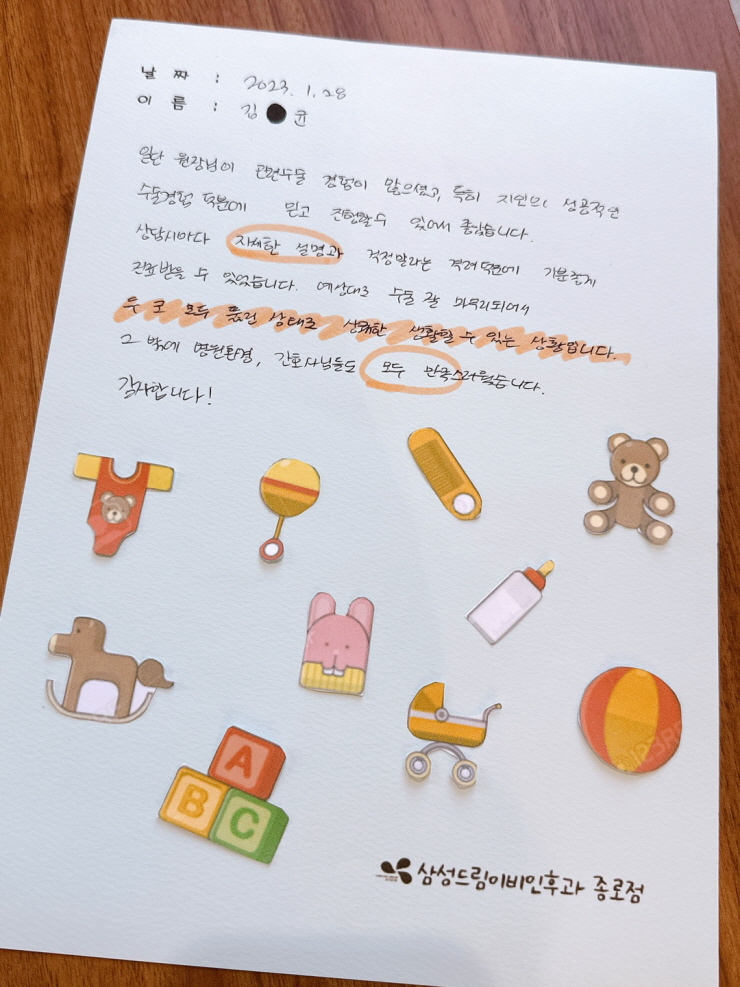 날 짜 : 2023. 1. 28
이 름 : 김 ● 균
일단 원장님이 관련수술 경험이 많으셨고, 특히 지인의 성공적인
수술경험 덕분에 믿고 진행할 수 있어서 좋았습니다.
상담시마다 자세한 설명과 걱정말라는 격려 덕분에 기분좋게
진료받을 수 있었습니다. 예상대로 수술 잘 마무리되어서
두 코 모두 뚫린 상태로 상쾌한 생활할 수 있는 상황입니다.
그 밖에 병원환경, 간호사님들도 모두 만족스러웠습니다.
감사합니다!
A
B C
삼성드림이비인후과 종로점